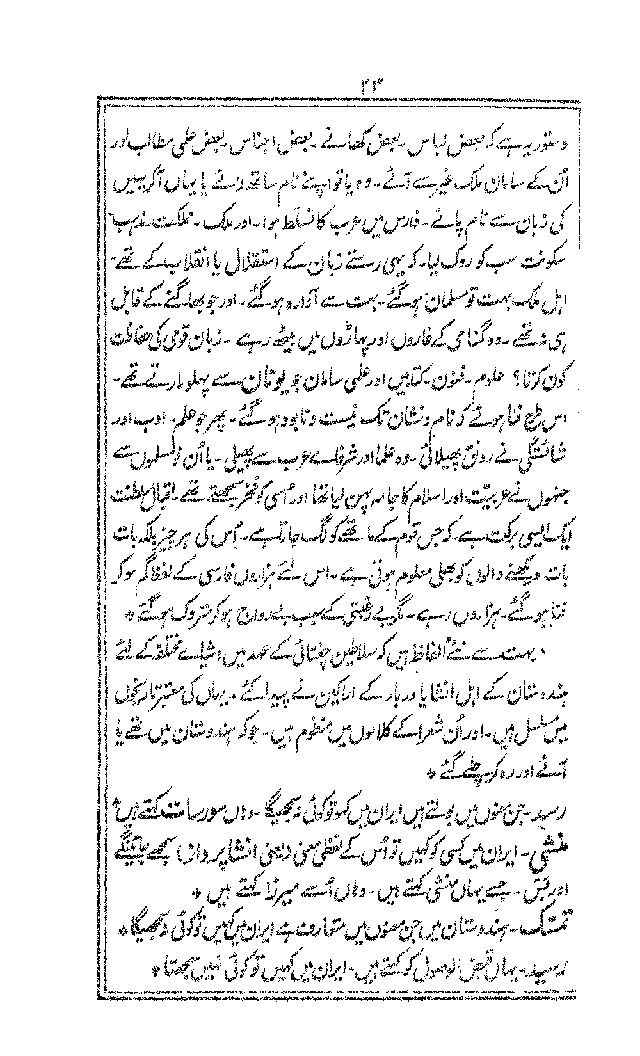 ۲۳
دستور یہ ہے کہ بعض لباس۔ بعض کھانے۔ بعض اجناس بعض علمی مطالب اور
اُن کے سامان ملک غیر سے آئے۔ وہ یا تو اپنے نام ساتھ لائے یا یہاں آ کر یہیں
کی زبان سے نام پائے۔ فارس میں عرب کا تسلط ہوا۔ اور ملک۔ مملکت مذہب
سکونت سب کو روک لیا۔ کہ یہی رستے زبان کے استقلال یا انقلاب کے تھے۔
اہل ملک بہت تو مسلمان ہو گئے۔ بہت سے آوارہ ہو گئے۔ اور جو بھاگنے کے قابل
ہی نہ تھے۔ وہ گمنامی کے غاروں اور پہاڑوں میں بیٹھ رہے۔ زبان قومی کی حفاظت
کون کرتا؟ علوم۔ فنون۔ کتابیں اور علمی سامان جو یونان سے پہلو مارتے تھے۔
اس طرح فنا ہوئے کہ نام و نشان تک نیست و نابود ہو گئے۔ پھر جو علم۔ ادب اور
شائستگی نے رونق پھیلائی۔ وہ علما اور شرفاے عرب سے پھیلی۔ یا اُن نسلوں سے
جنہوں نے عربیت اور اسلام کا جامہ پہن لیا تھا اور اُسی کو فخر سمجھتے تھے۔ اقبال سلطنت
ایک ایسی برکت ہے۔ کہ جس قوم کے ماتھے کو لگ جاتا ہے۔ اُس کی ہر چیز بلکہ بات
بات دیکھنے والوں کو بھلی معلوم ہوتی ہے۔ اس لئے ہزاروں فارسی کے لفظ گم ہو کر
فنا ہو گئے۔ ہزاروں رہے۔ مگر بے سبب بے رواج ہو کر متروک ہو گئے *
بہت سے نئے الفاظ ہیں کہ سلاطین چغتائی کے عہد میں اشیاے مختلفہ کے لئے
ہندوستان کے اہل انشا یا دربار کے اراکین نے پیدا کئے۔ یہاں کی معتبر تاریخوں
میں مسلسل ہیں۔ اور اُن شعرا کے کلاموں میں منظوم ہیں۔ جو کہ ہندوستان میں تھے یا
آئے اور رہ کر چلے گئے *
رسید۔ جن معنوں میں بولتے ہیں ایران میں کہو تو کوئی نہ سمجھیگا۔ وہاں کہتے ہیں
منشی۔ ایران میں کسی کو کہیں تو اُس کے لفظی معنی (یعنی انشا پرداز) سمجھے جائینگے
اور بس۔ جسے یہاں منشی کہتے ہیں۔ وہاں اُسے میرزا کہتے ہیں *
تمسک۔ ہندوستان میں جن معنوں میں متعارف ہے ایران میں کہیں تو کوئی نہ سمجھیگا *
رسید۔ یہاں قبض الوصول کو کہتے ہیں۔ ایران میں کہیں تو کوئی نہیں سمجھتا *